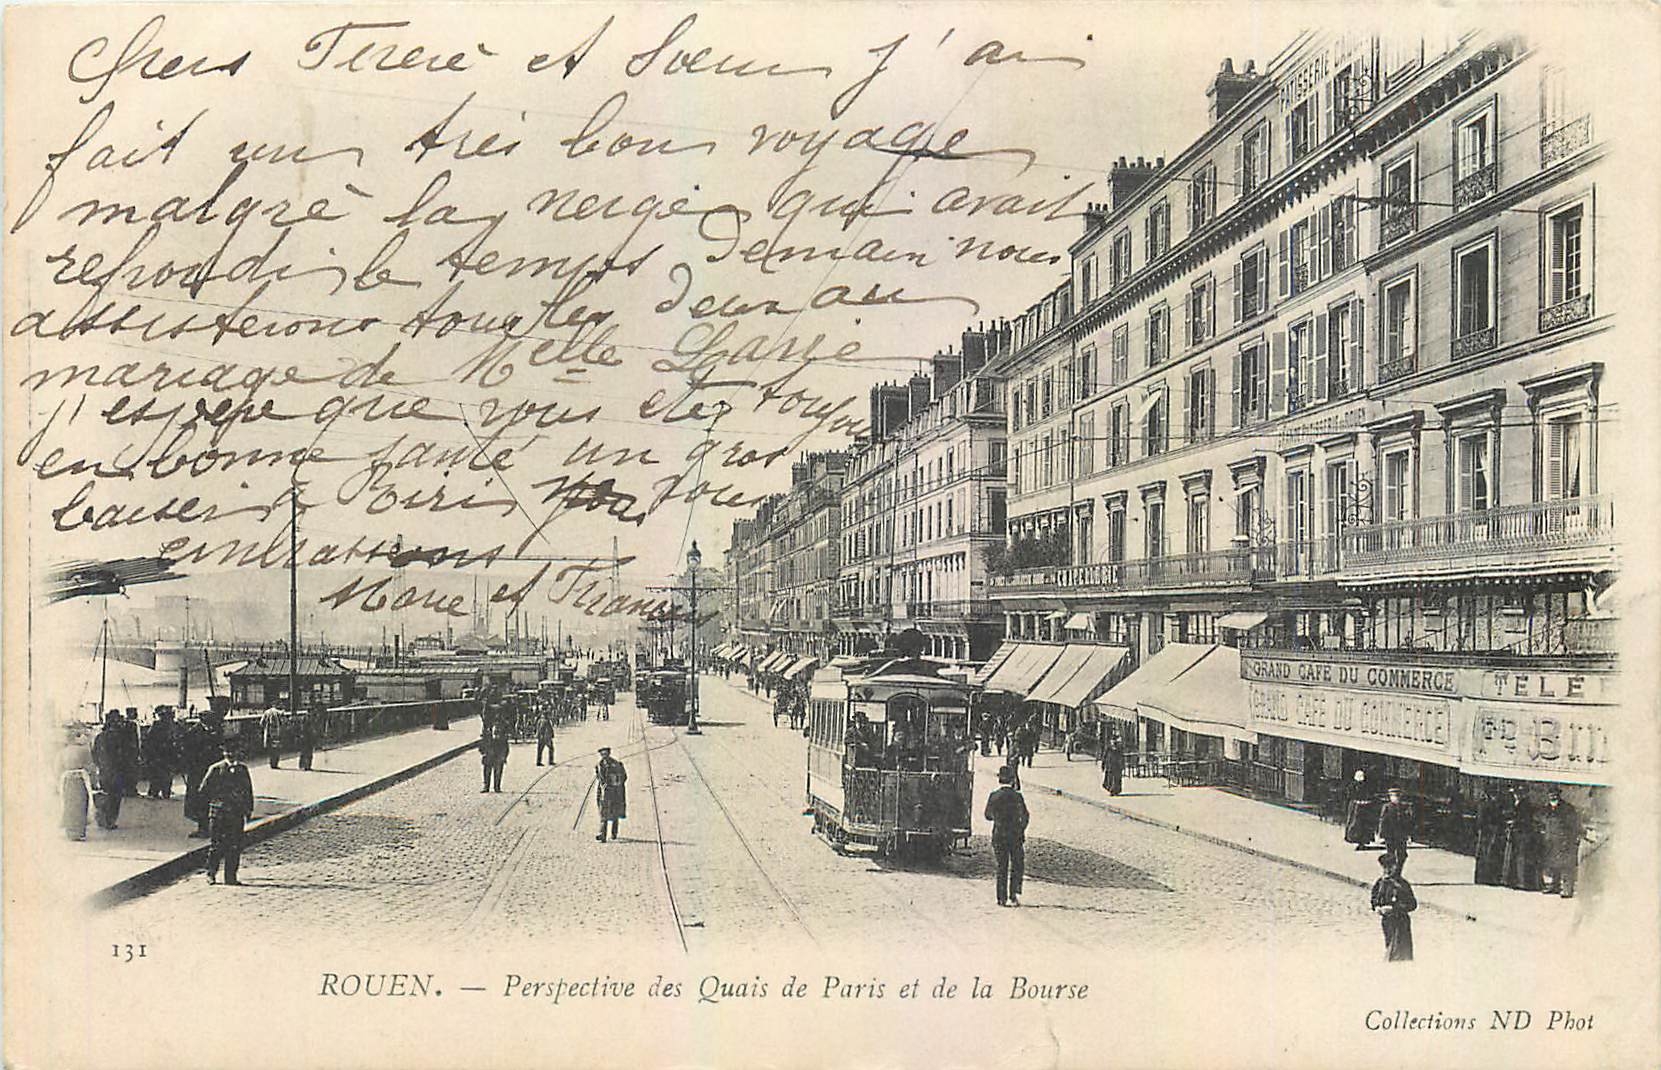 Chers Frère et Soeur j'ai
fait un très bon voyage
malgré la neige qui avait
refroidi le temps Demain nous
assisterons tous les deux au
mariage de Melle
j'espère que vous êtes toujours
en bonne santé un gros
baiser à Riri nous vous
embrassons
Marie et Francis
PATISSERIE
CREPERIE
GRAND CAFE DU COMMERCE
TÉLÉ
GRAND CAFE DU COMMERCE
131
ROUEN. — Perspective des Quais de Paris et de la Bourse
Collections ND Phot